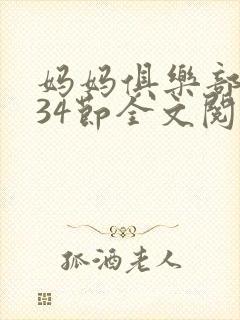 妈妈俱樂部
34節全文閱
孤酒老人